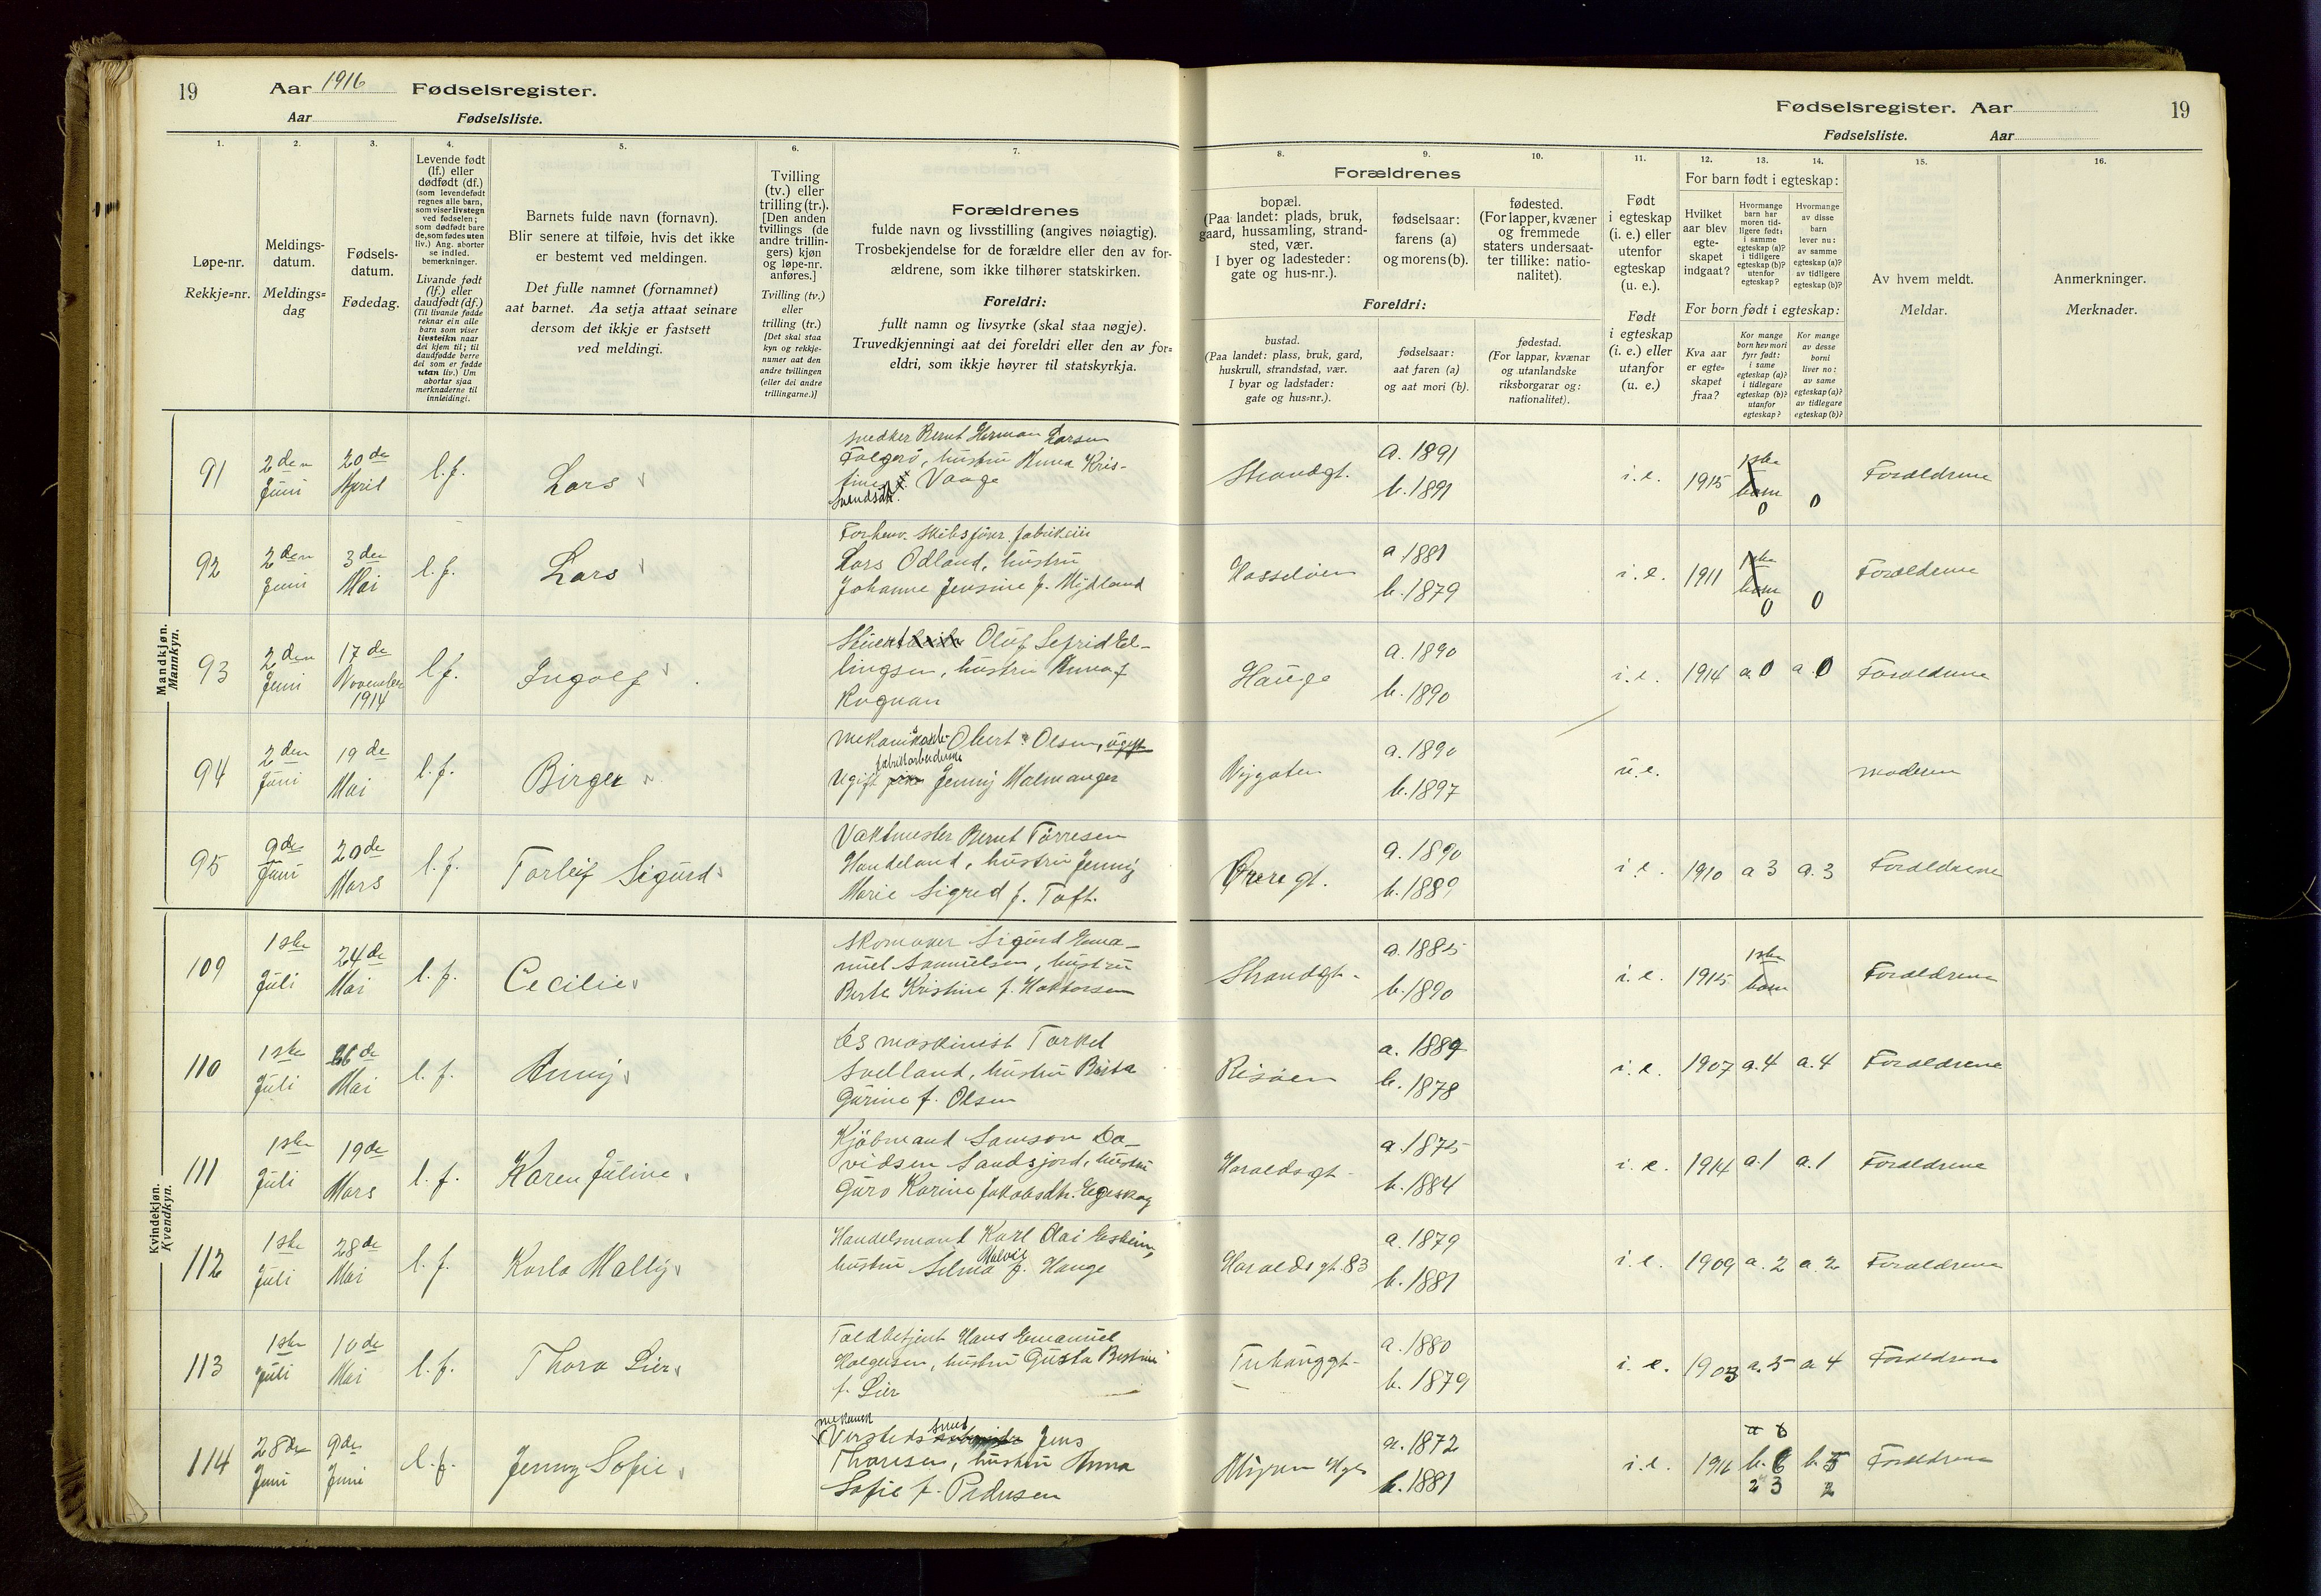 19
Aar 1916 Fødselsregister.
Aar Fødselsliste.
Fødselsregister. Aar
19
Fødselsliste. Aar
1.
Løpe-nr.
Rekkje=nr.
2.
Meldings-
datum.
Meldings=
dag
3.
Fødsels-
datum.
Fødedag.
4.
Levende født
(lf.) eller
dødfødt (df.)
(som levendefødt
regnes alle barn,
som viser livstegn
ved fødselen;
som dødfødt bare
de, som fødes uten
liv.) Ang. aborter
se indled.
bemerkninger.
Livande født
(lf.) eller
daudfødt (df.)
(Til livande fødde
reknar ein alle
barn som viser
livsteikn naar
dei kjem til; til
daudfødde berre
dei som er fødde
utan liv.) Um
abortar sjaa
merknaderne til
innleidingi.
5.
Barnets fulde navn (fornavn).
Blir senere at tilføie, hvis det ikke
er bestemt ved meldingen.
Det fulle namnet (fornamnet)
aat barnet. Aa setja attaat seinare
dersom det ikkje er fastsett
ved meldingi.
6.
Tvilling
(tv.) eller
trilling (tr.).
[Den anden
tvillings (de
andre trillin-
gers) kjøn
og løpe-nr.
anføres.]
Tvilling (tv.)
eller
trilling (tr.)
[Det skal staa
kyn og rekkje-
numer aat den
andre tvillingen
(eller dei andre
trillingarne.)]
7.
Forældrenes
fulde navn og livsstilling (angives nøiagtig).
Trosbekjendelse for de forældre eller den av for-
ældrene, som ikke tilhører statskirken.
Foreldri:
fullt namn og livsyrke (skal staa nøgje).
Truvedkjenningi aat dei foreldri eller den av for=
eldri, som ikkje høyrer til statskyrkja.
8.
Forældrenes
bopæl.
(Paa landet: plads, bruk,
gaard, hussamling, strand-
sted, vær.
I byer og ladesteder:
gate og hus-nr.).
Foreldri:
bustad.
(Paa landet: plass, bruk, gard,
huskrull, strandstad, vær.
I byar og ladstader:
gate og hus=nr.).
9.
fødselsaar:
farens (a)
og morens (b).
fødselsaar:
aat faren (a)
og aat mori (b).
10.
fødested.
(For lapper, kvæner
og fremmede
staters undersaat-
ter tillike: natio-
nalitet).
fødestad.
(For lappar, kvænar
og utanlandske
riksborgarar og:
nationalitet).
11.
Født
i egteskap
(i. e.) eller
utenfor
egteskap
(u. e.).
Født
i egteskap
(i. e.) eller
utanfor
(u. e.)
12.
For barn født i egteskap:
Hvilket
aar blev
egte-
skapet
indgaat?
For born født i egteskap:
Kva aar
er egte=
skapet
fraa?
13.
Hvormange
barn har
moren tid-
ligere født:
i samme
egteskap (a)?
i tidligere
egteskap (b)?
utenfor
egteskap?
Kor mange
born hev mori
fyrr født:
i same
egteskap (a)?
i tidlegare
egteskap (b)?
utanfor
egteskap?
14.
Hvormange
av disse
barn
lever nu:
av samme
egteskap (a)?
av tidligere
egteskap (b)?
Kor mange
av desse
borni
liver no:
av same
egteskap (a)?
av tidlegare
egteskap (b)?
15.
Av hvem meldt.
Meldar.
16.
Anmerkninger.
Merknader.
Mandkjøn.
Mannkyn.
91 2den Juni 20de April l.f. Lars
snedker Bernt Herman Larsen
Falgerø, hustru Anna Kris-
tine Svendsdt. Vaage
Strandgt. a. 1891 b. 1891 i.e. 1915 1ste barn 0 0 Forældrene
92 2den Juni 3den Mai l.f. Lars
Forhenv. skibsfører, fabrikeier
Lars Odland, hustru
Johanne Jensine f. Mydland
Hasseløen a. 1881 b. 1879 i.e. 1911 1ste barn 0 0 Forældrene
93 2den Juni 17de November 1914 l.f. Ingolf
Stuert Oluf Sefrid El-
lingsen, hustru Anna f.
Rognan
Hauge a. 1890 b. 1890 i.e. 1914 a 0 a 0 Forældrene
94 2den Juni 19de Mai l.f. Birger
Obert Olsen, ugift
Ugift fabrikarbeiderske Jenny Malmanger
Nygaten a. 1890 b. 1897 u.e. moderen
95 9de Juni 20de Mars l.f. Torleif Sigurd
Vaktmester Bernt Tørresen
Handeland, hustru Jenny
Marie Sigred f. Toft.
Øvregt. a. 1890 b. 1889 i.e. 1910 a 3 a. 3 Forældrene
Kvindekjøn.
Kvendkyn.
109 1ste Juli 24de Mai l.f. Cecilie
Skomaker Sigurd Ema-
nuel Samuelsen, hustru
Berte Kristine f. Haktorsen
Strandgt. a. 1885 b. 1890 i.e. 1915 1ste barn Forældrene
110 1ste Juli 26de Mai l.f. Anny
maskinist Torkel
Svelland, hustru Berta
Gurine f. Olsen
Risøen a. 1889 b. 1878 i.e. 1907 a. 4 a. 4 Forældrene
111 1ste Juli 19de Mars l.f. Karen Juline
Kjøbmand Samson Da-
vidsen Sandsjord, hustru
Guro Karine Jakobsdtr. Egeskog
Haraldsgt. a. 1875 b. 1884 i.e. 1914 a. 1 a. 1 Forældrene
112 1ste Juli 28de Mai l.f. Karla Mally
Handelsmand Karl Olai Eskeim,
hustru Selma Malvie f. Hauge
Haraldsgt. 83 a. 1879 b. 1881 i.e. 1909 a. 2 a. 2 Forældrene
113 1ste Juli 10de Mai l.f. Thora Lier
Toldbetjent Hans Emanuel
Holgersen, hustru Gusta
f. Lier
Tuhauggt. a. 1880 b. 1879 i.e. 1903 a. 5 a. 4 Forældrene
114 28de Juni 9de Juni l.f. Jenny Sofie
mekanisk
Versteds smed Jens
Thorsen, hustru Anna
Sofie f. Pedersen
a. 1872 b. 1881 i.e. 1916 Forældrene